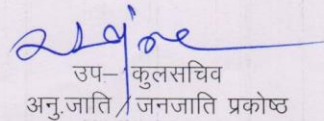 उप– कुलसचिव
अनु.जाति / जनजाति प्रकोष्ठ